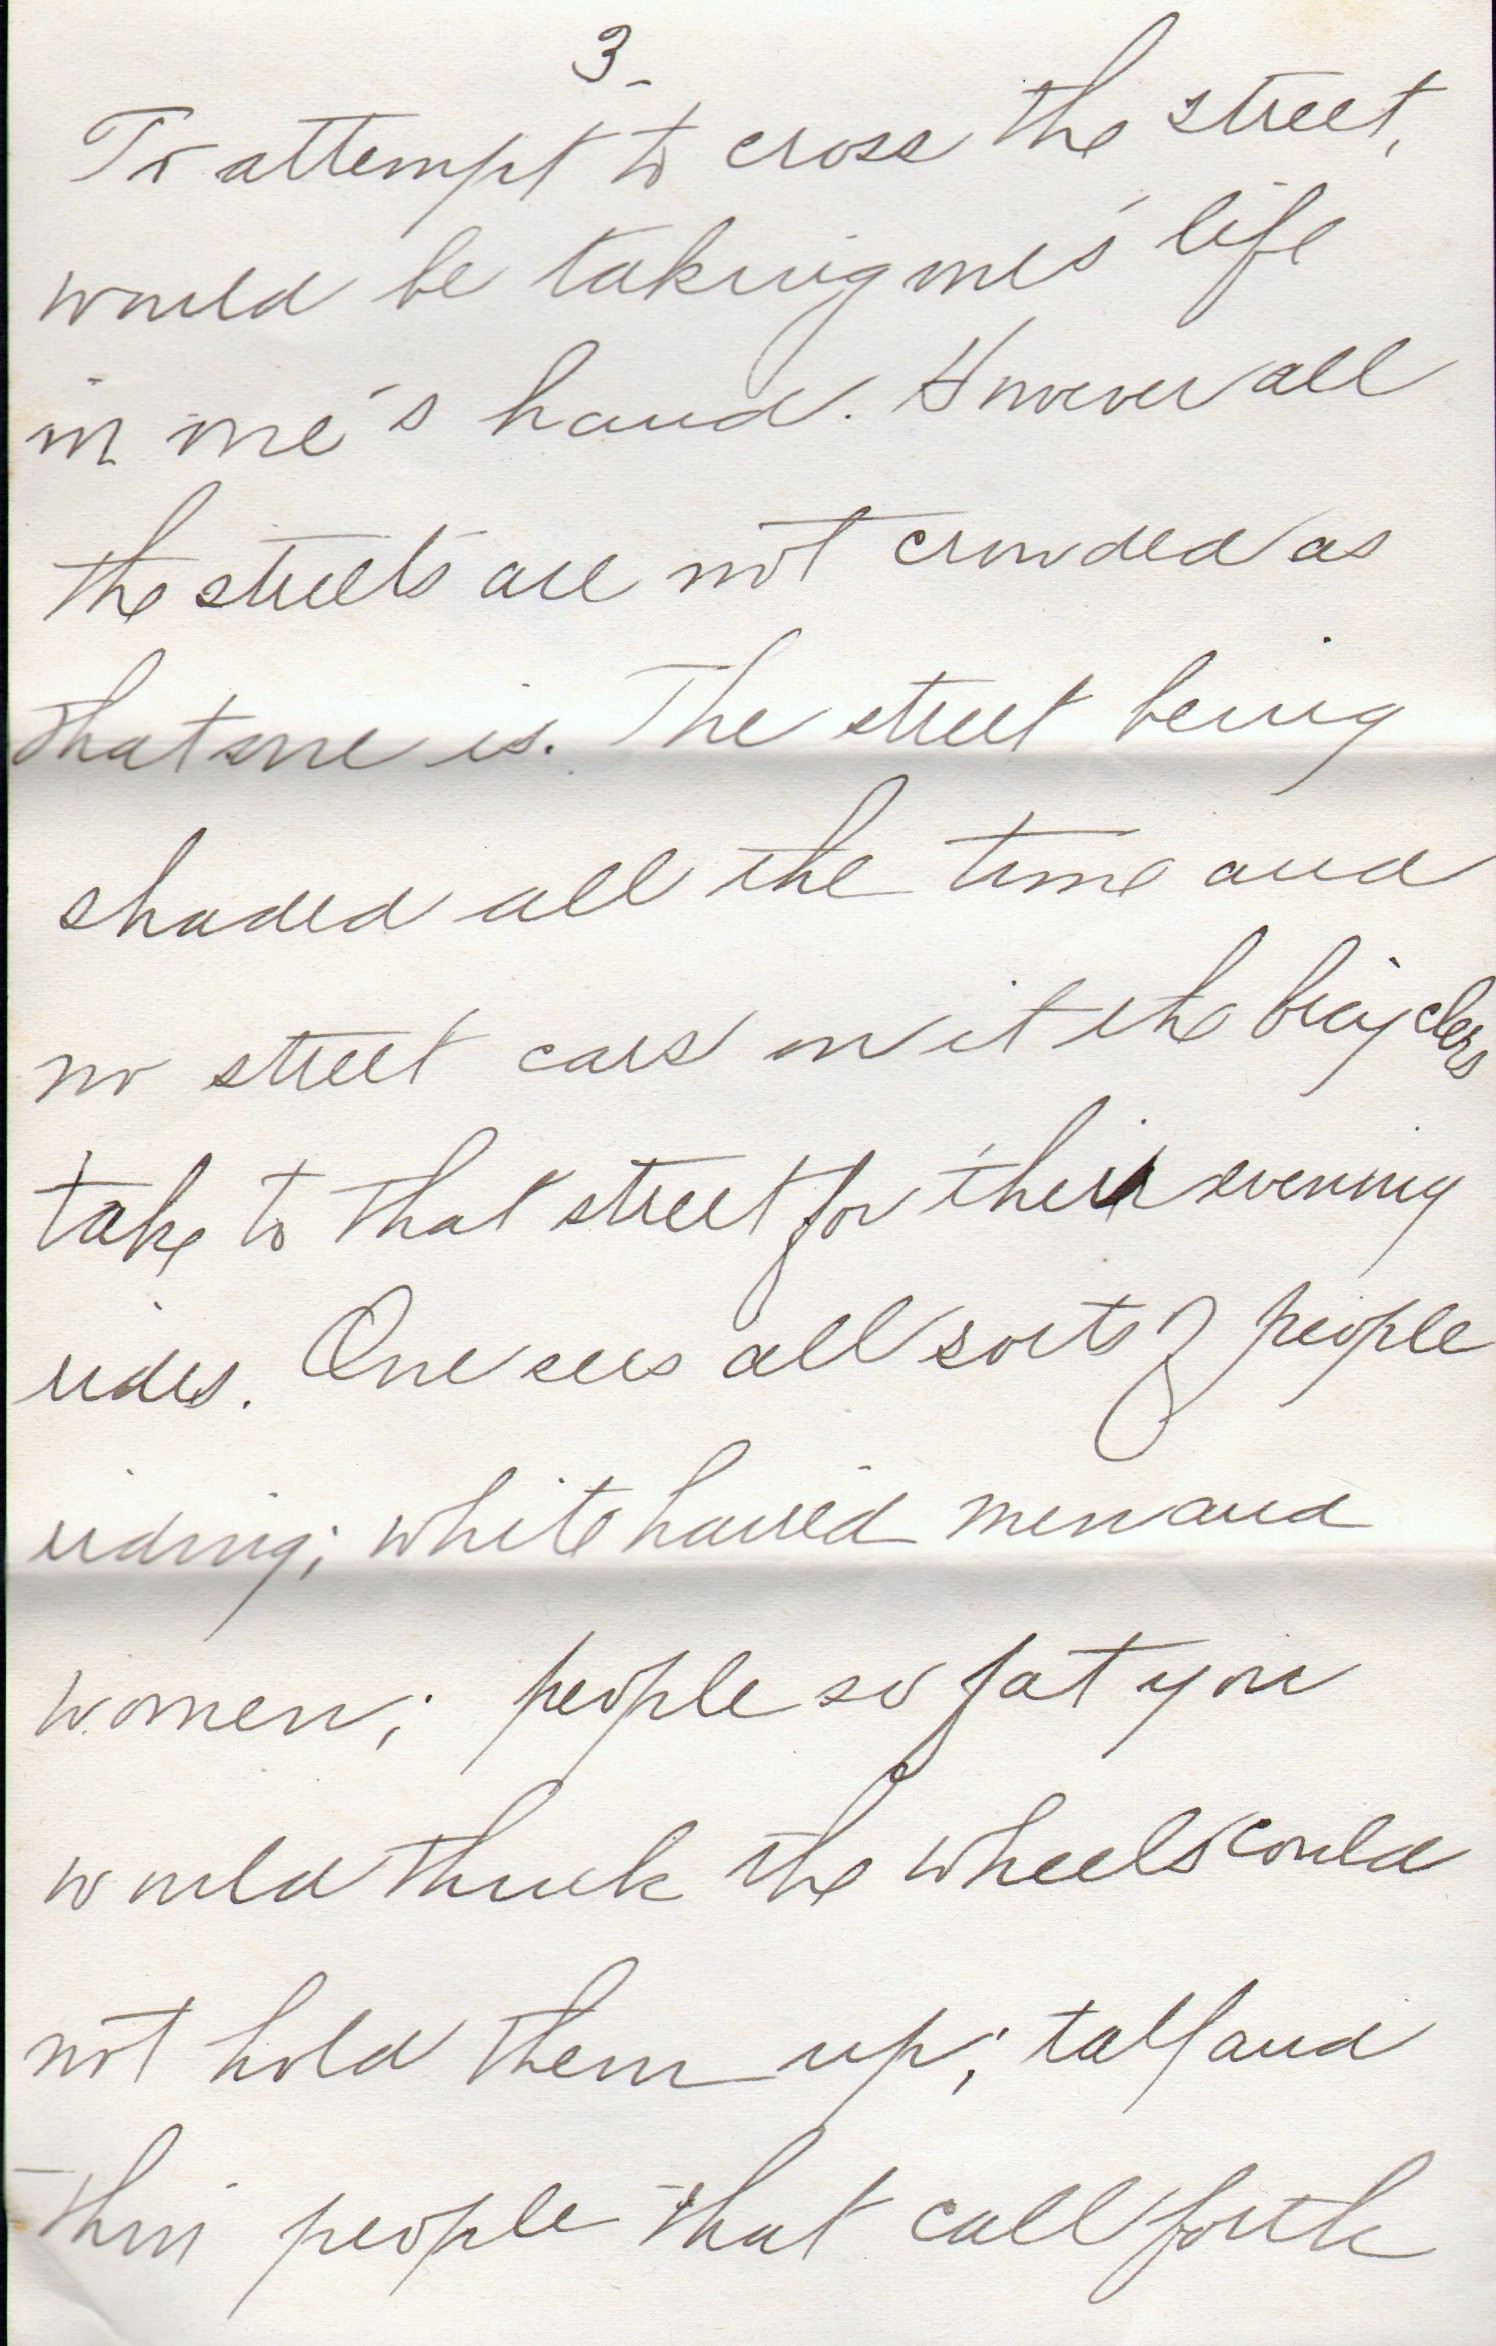 3-
To attempt to cross the street,
would be taking ones' life
in one's hand. However all
the streets are not crowded as
that one is. The street being
shaded all the time and
no street cars on it the bicyclers
take to that street for their evening
rides. One sees all sorts of people
riding; white haired men and
women; people so fat you
would think the wheels could
not hold them up; tall and
thin people that call forth